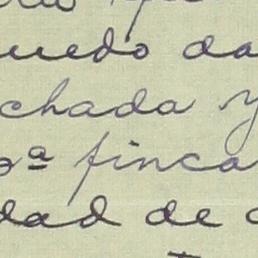 uedo da
chada y
ª finca
dad de